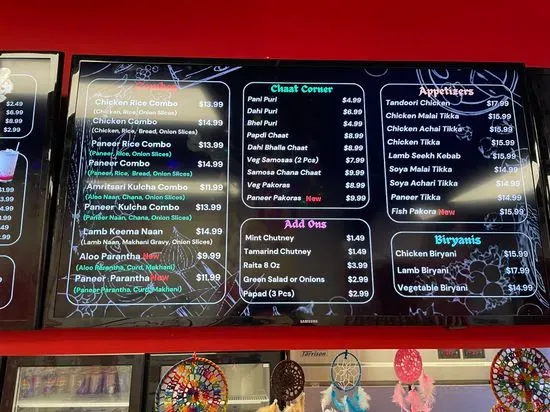 $2.49
$6.99
$8.99
$2.99
$4.99
$3.99
Combos
Chicken Rice Combo $13.99
(Chicken, Rice, Onion Slices)
Chicken Combo $14.99
(Chicken, Rice, Bread, Onion Slices)
Paneer Rice Combo $13.99
(Paneer, Rice, Onion Slices)
Paneer Combo $14.99
(Paneer, Rice, Bread, Onion Slices)
Amritsari Kulcha Combo $11.99
(Aloo Naan, Chana, Onion Slices)
Paneer Kulcha Combo $13.99
(Paneer Naan, Chana, Onion Slices)
Lamb Keema Naan $14.99
(Lamb Naan, Makhani Gravy, Onion Slices)
Aloo Parantha New $9.99
(Aloo Parantha, Curd, Makhani)
Paneer Parantha New $11.99
(Paneer Parantha, Curd, Makhani)
Chaat Corner
Pani Puri $4.99
Dahi Puri $6.99
Bhel Puri $4.99
Papdi Chaat $8.99
Dahi Bhalla Chaat $8.99
Veg Samosas (2 Pcs) $7.99
Samosa Chana Chaat $9.99
Veg Pakoras $8.99
Paneer Pakoras New $9.99
Add Ons
Mint Chutney $1.49
Tamarind Chutney $1.49
Raita 8 Oz $3.99
Green Salad or Onions $2.99
Papad (3 Pcs) $2.99
Appetizers
Tandoori Chicken $17.99
Chicken Malai Tikka $15.99
Chicken Achai Tikka $15.99
Chicken Tikka $15.99
Lamb Seekh Kebab $15.99
Soya Malai Tikka $14.99
Soya Achari Tikka $14.99
Paneer Tikka $14.99
Fish Pakora New $15.99
Biryanis
Chicken Biryani $15.99
Lamb Biryani $17.99
Vegetable Biryani $14.99
SAMSUNG
Torrison